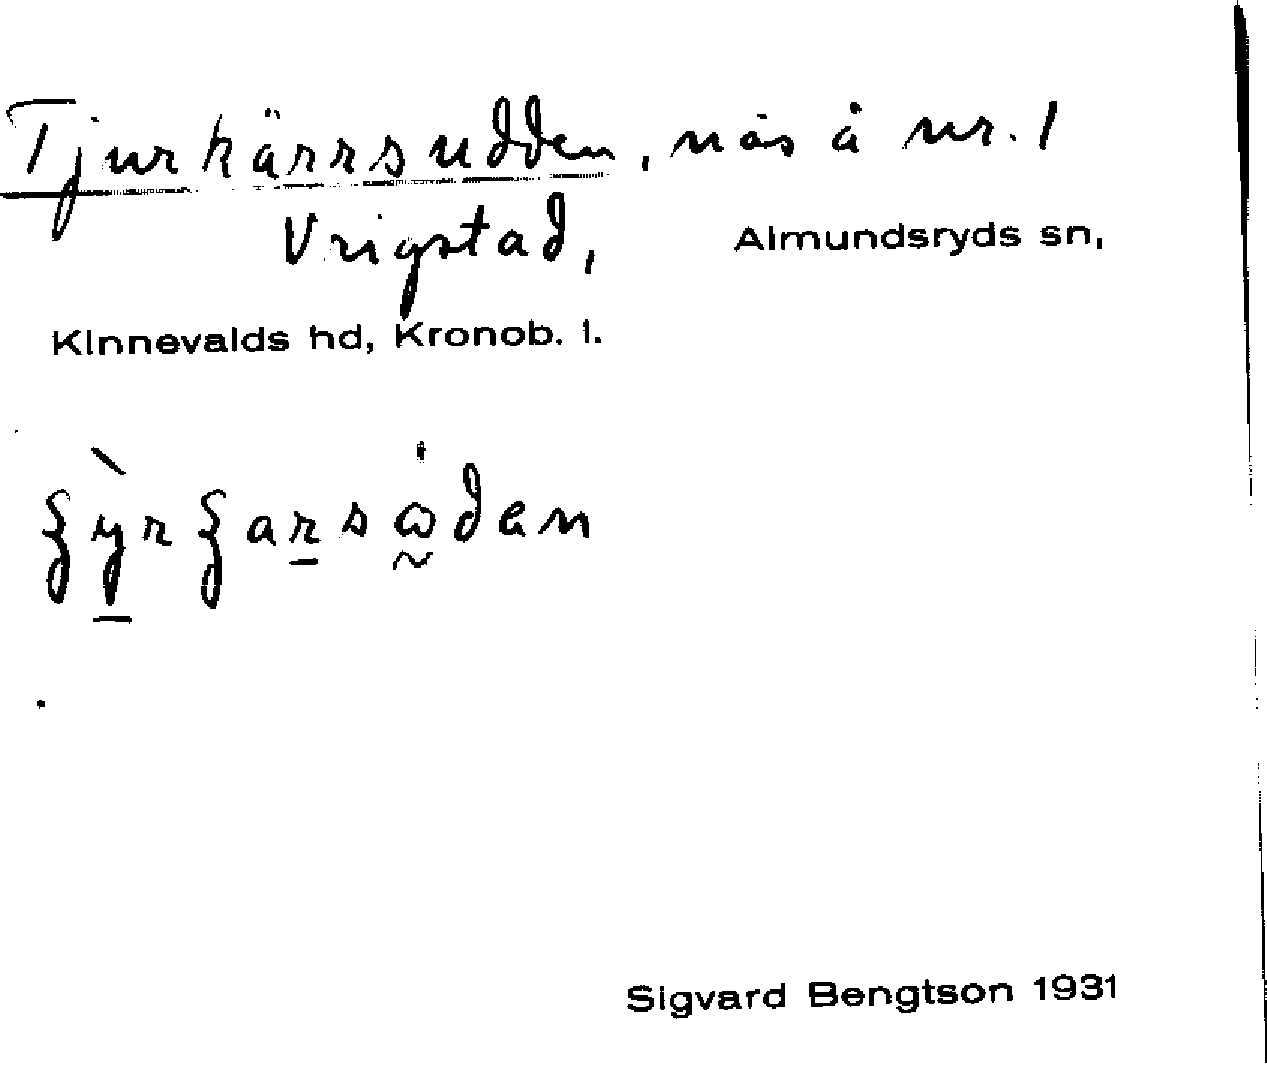 Tjurkärrsudden, näs å nr. 1
Vrigstad, Almundsryds sn,
Kinnevalds hd, Kronob. l.
Sigvard Bengtson 1931